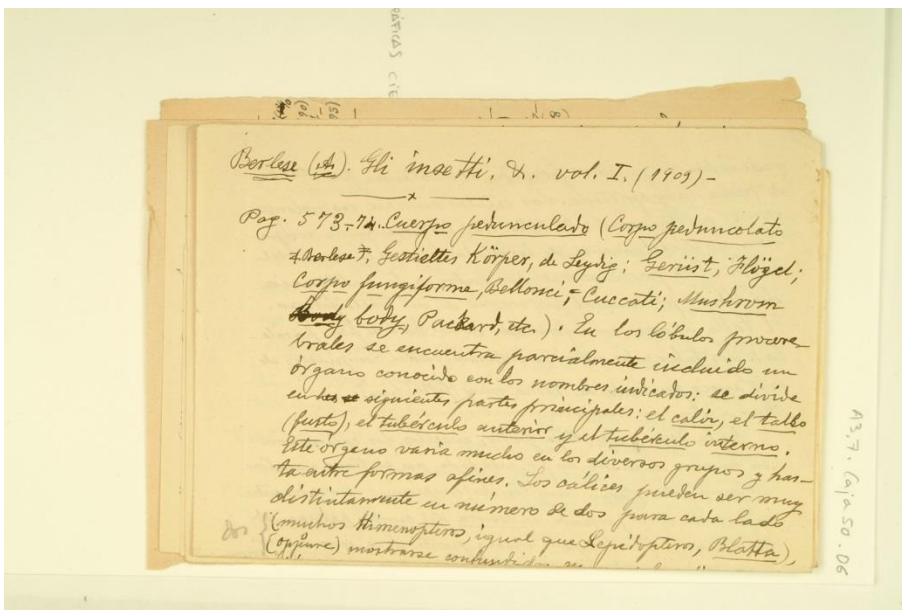 Berlese (A). Gli insetti, &. vol. I. (1909) -
Pag. 573-74. Cuerpo pedunculado (Corpo peduncolato
Berlese, Gestieltes Körper, de Leydig; Gerüst, Flögel;
Corpo fungiforme, Bellonci, Cuccati; Mushrom
body, Packard, etc). En los lóbulos procere-
brales se encuentra parcialmente incluido un
órgano conocido con los nombres indicados: se divide
en siguientes partes principales: el caliz, el tallo
(fusto), el tubérculo anterior y el tubérculo interno.
Este órgano varía mucho en los diversos grupos y has-
ta entre formas afines. Los cálices pueden ser muy
distintamente en número de dos para cada lado
(muchos Himenopteros, igual que Lepidopteros, Blatta),
(oppure) mostrarse
A3.7. Caja 50.06